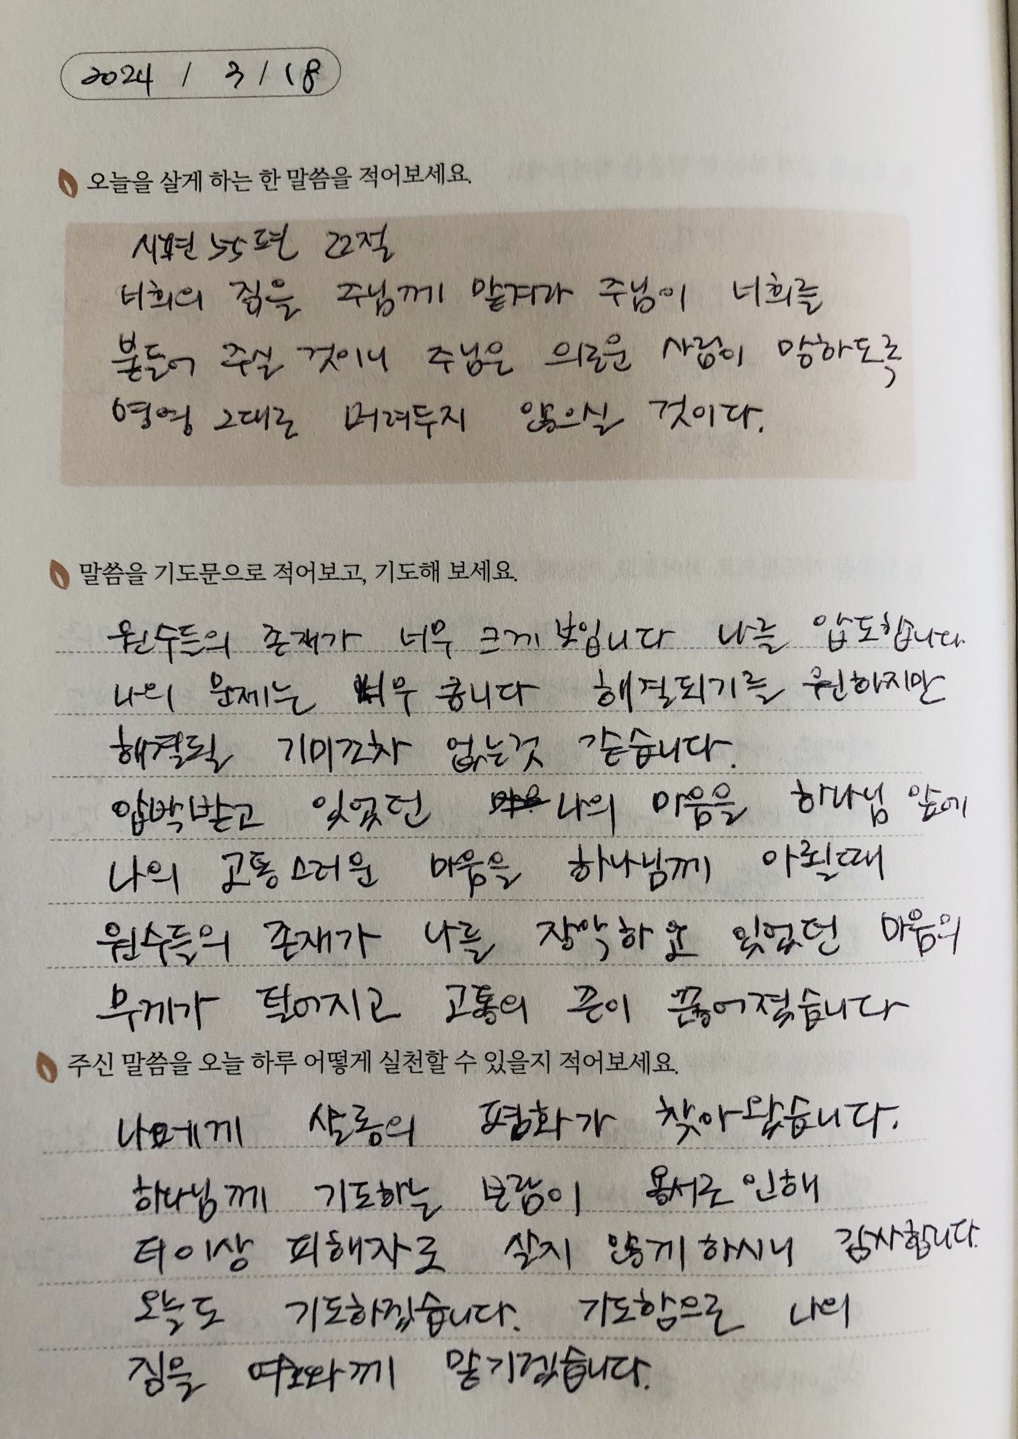 2024 / 3 / 18
오늘을 살게 하는 한 말씀을 적어보세요.
시편 55편 22절
너희의 짐을 주님께 맡겨라 주님이 너희를
붙들어 주실 것이니 주님은 의로운 사람이 망하도록
영영 그대로 버려두지 않으실 것이다.
말씀을 기도문으로 적어보고, 기도해 보세요.
원수들의 존재가 너무 크게 보입니다 나를 압도합니다.
나의 문제는 너무 큽니다 해결되기를 원하지만
해결될 기미조차 없는것 같습니다.
압박받고 있었던 나의 마음을 하나님 앞에
나의 고통스러운 마음을 하나님께 아뢸때
원수들의 존재가 나를 장악하고 있었던 마음의
무게가 덜어지고 고통의 끈이 끊어졌습니다
주신 말씀을 오늘 하루 어떻게 실천할 수 있을지 적어보세요.
나에게 샬롬의 평화가 찾아왔습니다.
하나님께 기도하는 보람이 용서로 인해
더이상 피해자로 살지 않게하시니 감사합니다.
오늘도 기도하겠습니다. 기도함으로 나의
짐을 여호와께 맡기겠습니다.